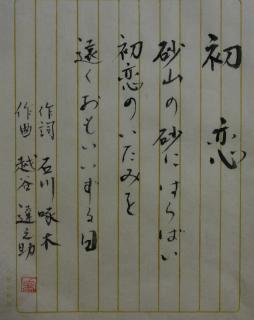 初恋
砂山の砂にはらばい
初恋のいたみを
遠くおもいいずる日
作詞 石川啄木
作曲 越谷達之助